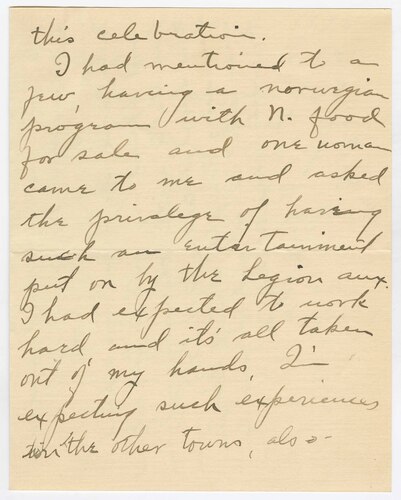 this celebration.
I had mentioned to a
few, having a norwegian
program with N. food
for sale and one woman
came to me and asked
the privalege of having
such an entertainment
put on by the Legion aux.
I had expected to work
hard and it's all taken
out of my hands, I'm
expecting such experiences
in the other towns, also-